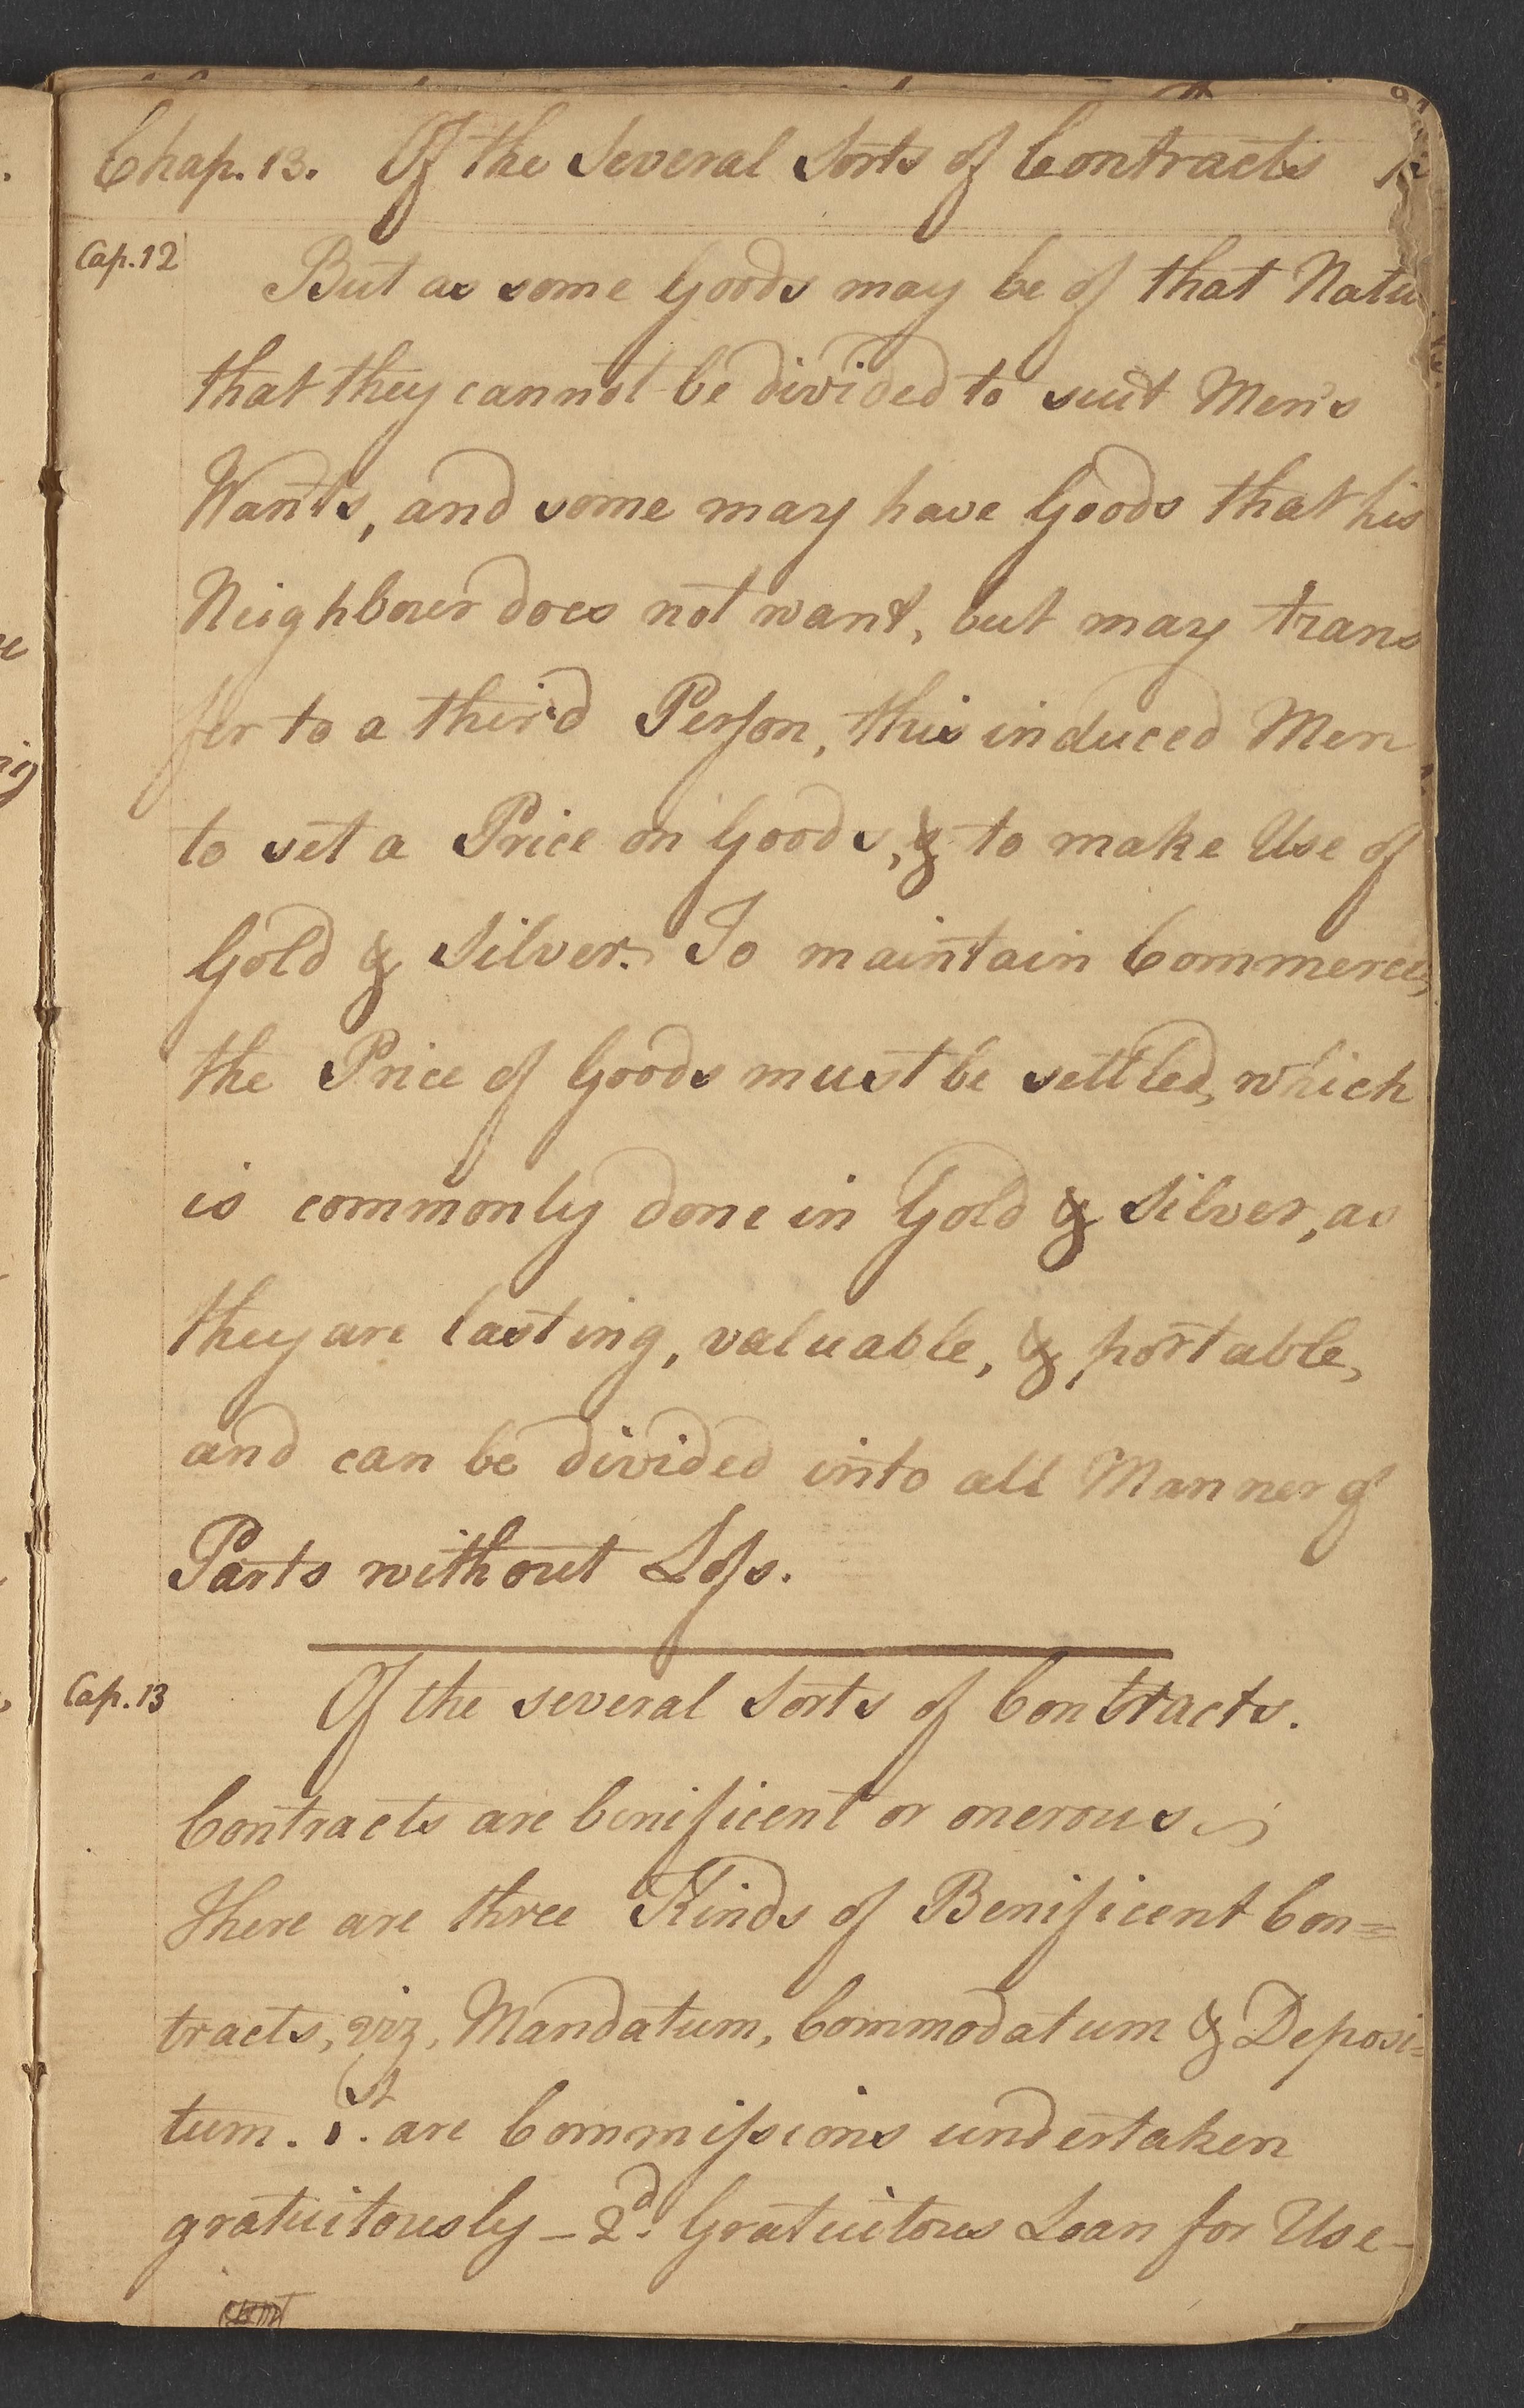 Chap. 13. Of the Several Sorts of Contracts
Cap. 12
But as some Goods may be of that Natu
that they cannot be divided to suit Men's
Wants, and some may have Goods that his
Neighbour does not want, but may trans
fer to a third Person, this induced Men
to set a Price on Goods, & to make Use of
Gold & Silver. To maintain Commerce,
the Price of Goods must be settled, which
is commonly done in Gold & Silver, as
they are lasting, valuable, & portable,
and can be divided into all Manner of
Parts without Loss.
Cap. 13
Of the several Sorts of Contracts.
Contracts are benificent or onerous
There are three Kinds of Benificent Con=
tracts, viz, Mandatum, Commodatum & Deposi=
tum. 1st. are Commissions undertaken
gratuitously – 2d. Gratuitous Loan for Use –